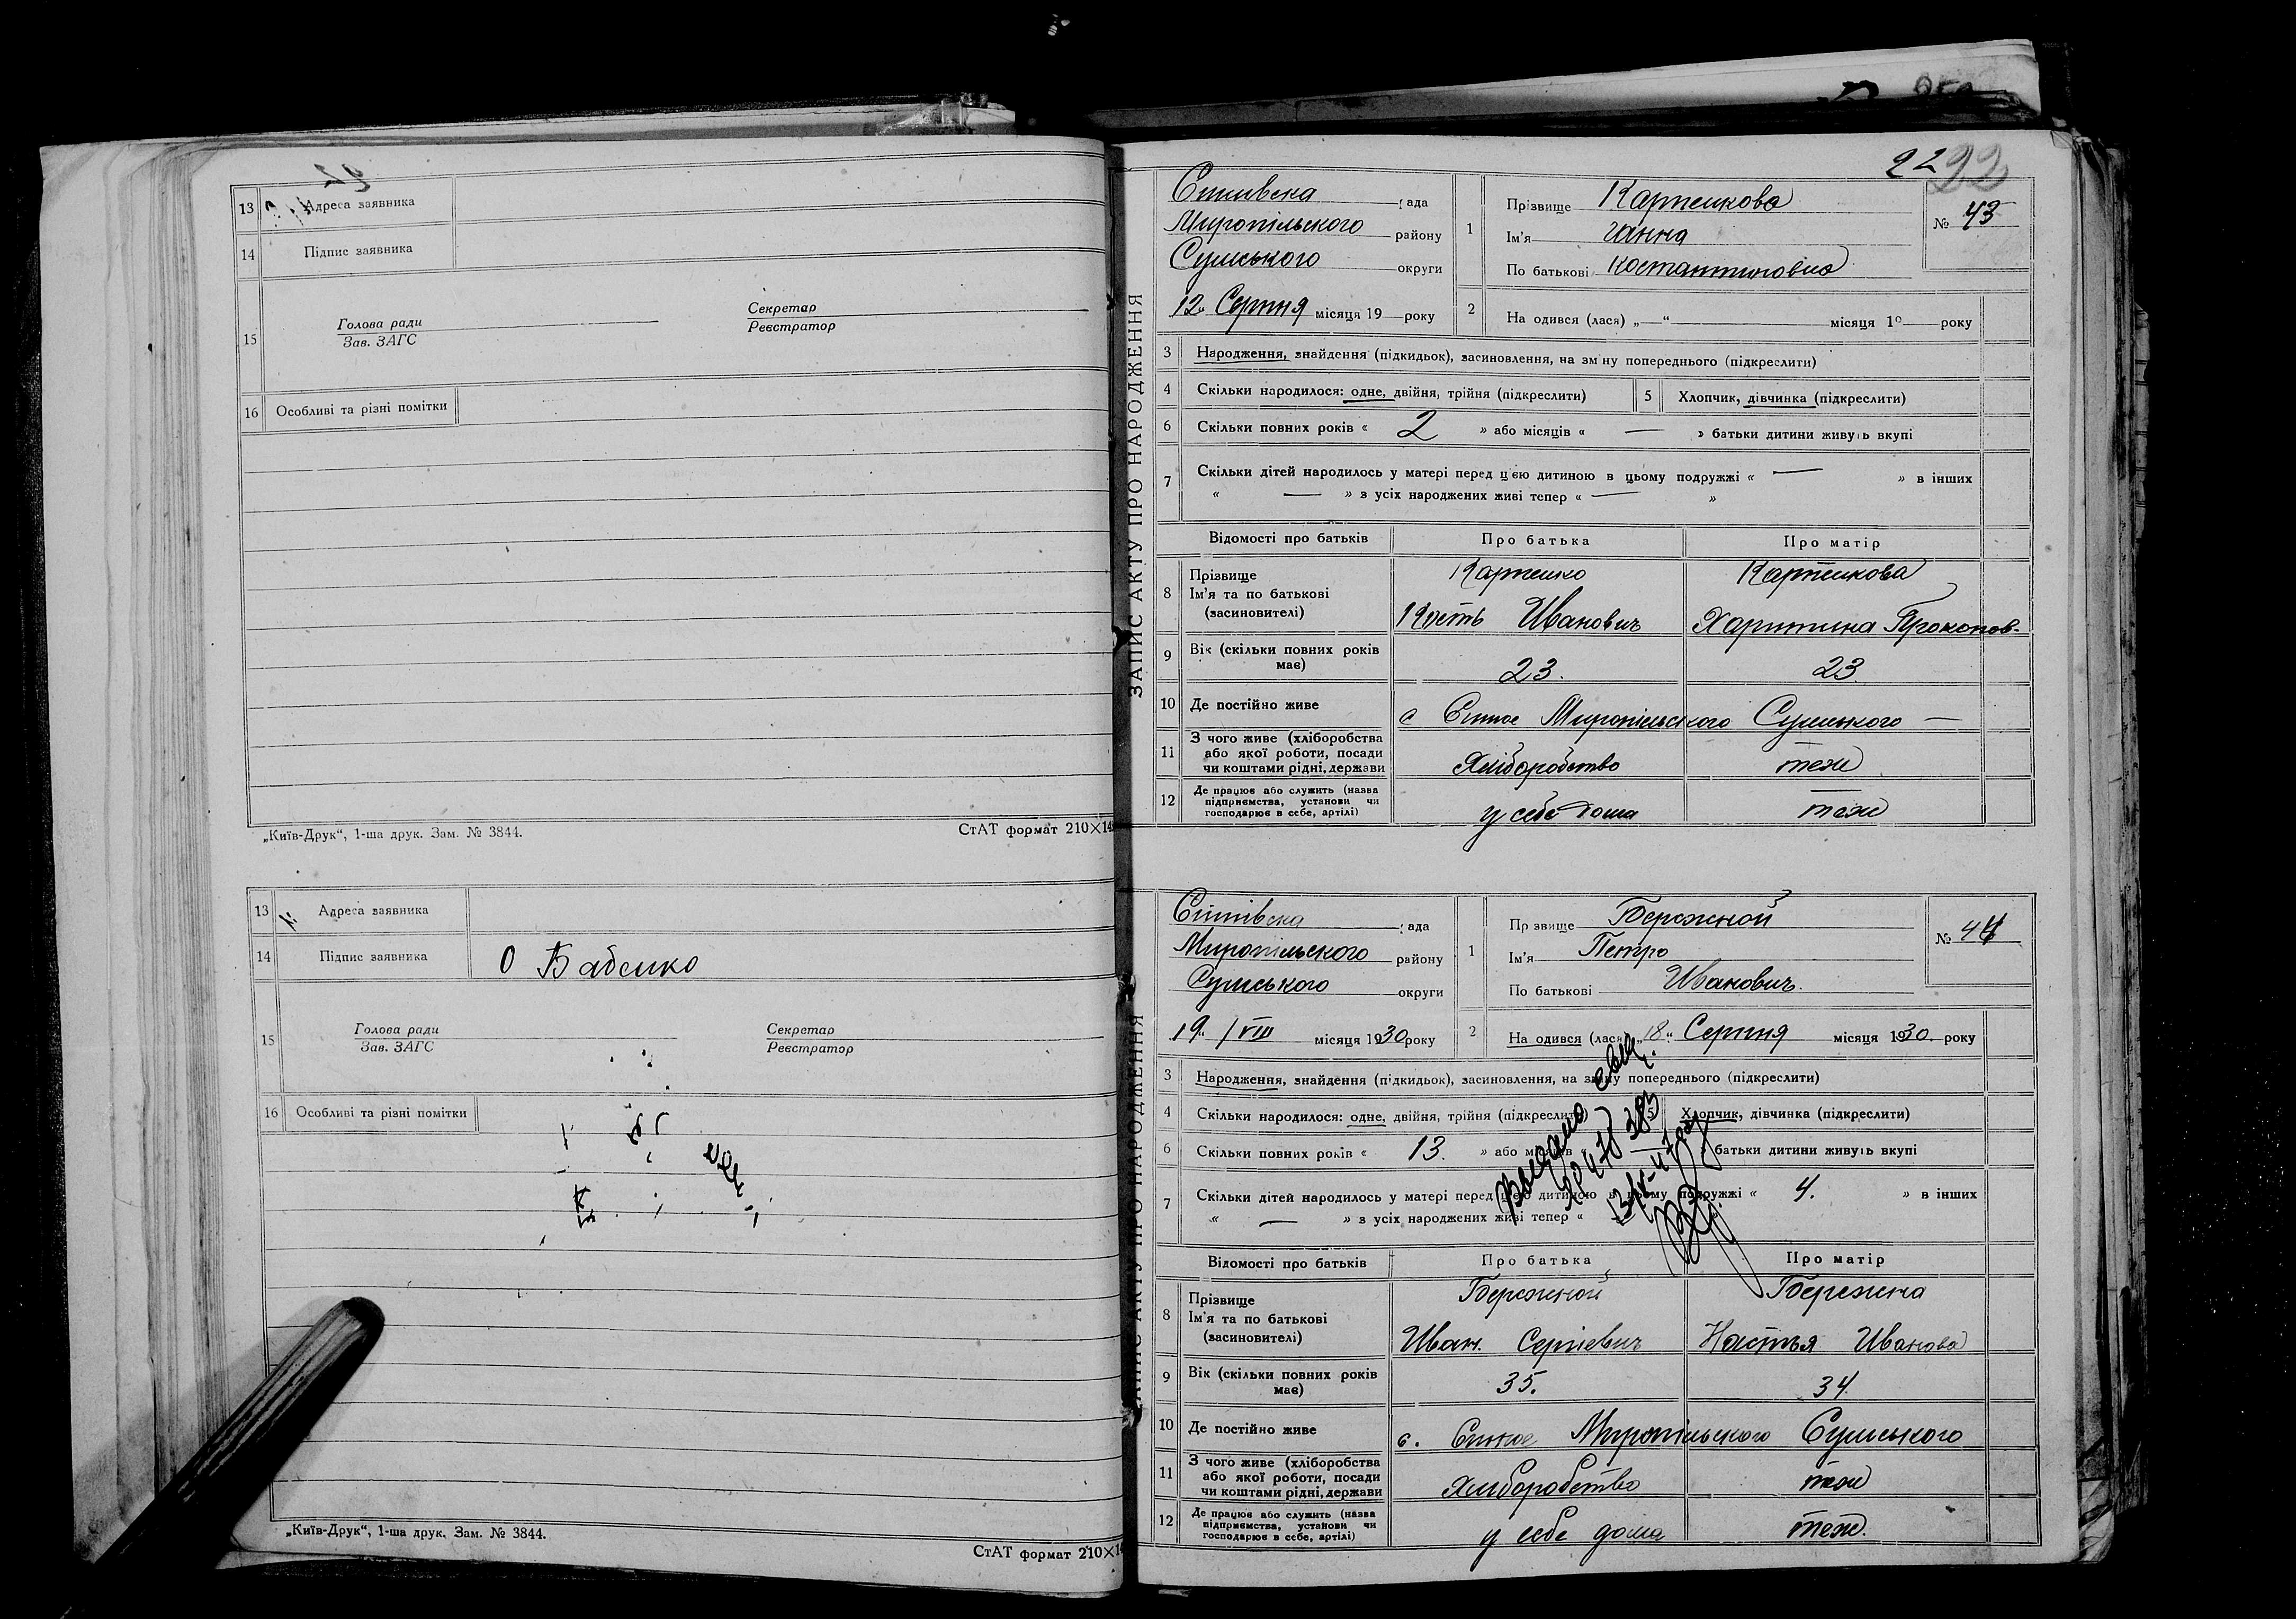 13 Адреса заявника
14 Підпис заявника
15 Голова ради
Зав. ЗАГС
Секретар
Реєстратор
16 Особливі та різні помітки
„Київ-Друк“, 1-ша друк. Зам. № 3844.
СтАТ формат 210×14
13 Адреса заявника
14 Підпис заявника О Бабенко
15 Голова ради
Зав. ЗАГС
Секретар
Реєстратор
16 Особливі та різні помітки
„Київ-Друк“, 1-ша друк. Зам. № 3844.
СтАТ формат 210×14
22 22
ЗАПИС АКТУ ПРО НАРОДЖЕННЯ
рада
Миропільського району
Сумського округи
12 Серпня місяця 19 — року
1 Прізвище Карпенкова
Ім'я Ганна
По батькові Костантиновна
№ 43
2 На одився (лася) „—“ місяця 19 року
3 Народження, знайдення (підкидьок), засиновлення, на зміну попереднього (підкреслити)
4 Скільки народилося: одне, двійня, трійня (підкреслити) 5 Хлопчик, дівчинка (підкреслити)
6 Скільки повних років « 2 » або місяців « — » батьки дитини живуть вкупі
7 Скільки дітей народилось у матері перед цією дитиною в цьому подружжі « — » в інших
« — » з усіх народжених живі тепер « — »
Відомості про батьків Про батька Про матір
8 Прізвище Карпенко Карпенкова
Ім'я та по батькові
(засиновителі) Кость Иванович Харитина Прокопов-
9 Вік (скільки повних років має) 23. 23.
10 Де постійно живе с Миропільського Сумського —
11 З чого живе (хліборобства
або якої роботи, посади
чи коштами рідні, держави Хліборобство теж
12 Де працює або служить (назва
підприємства, установи чи
господарює в себе, артілі) у себе дома теж
ЗАПИС АКТУ ПРО НАРОДЖЕННЯ
рада
Миропільського району
Сумського округи
19 / VIII місяця 1930 року
1 Пр звище Бережной
Ім'я Петро
По батькові Иванович.
№ 44
2 На одився (лася) „18“ Серпня місяця 1930. року
3 Народження, знайдення (підкидьок), засиновлення, на зміну попереднього (підкреслити)
4 Скільки народилося: одне, двійня, трійня (підкреслити) 5 Хлопчик, дівчинка (підкреслити)
6 Скільки повних років « 13. » або місяців « батьки дитини живуть вкупі
7 Скільки дітей народилось у матері перед цією дитиною в цьому подружжі « 4. » в інших
« — » з усіх народжених живі тепер «
Відомості про батьків Про батька Про матір
8 Прізвище Бережной Бережна
Ім'я та по батькові
(засиновителі) Иван. Сергієвич Настья Иванова
9 Вік (скільки повних років має) 35. 34
10 Де постійно живе с. Миропільського Сумського
11 З чого живе (хліборобства
або якої роботи, посади
чи коштами рідні, держави Хліборобство теж
12 Де працює або служить (назва
підприємства, установи чи
господарює в себе, артілі) у себе дома теж.